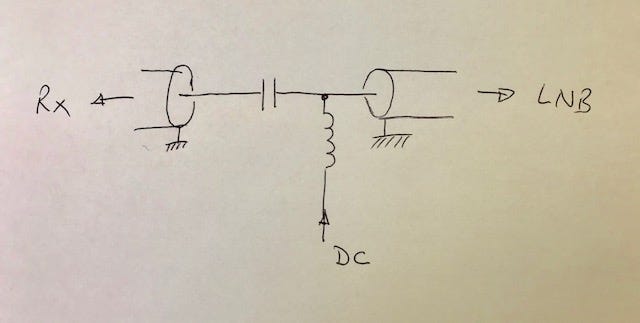 Rx
LNB
DC